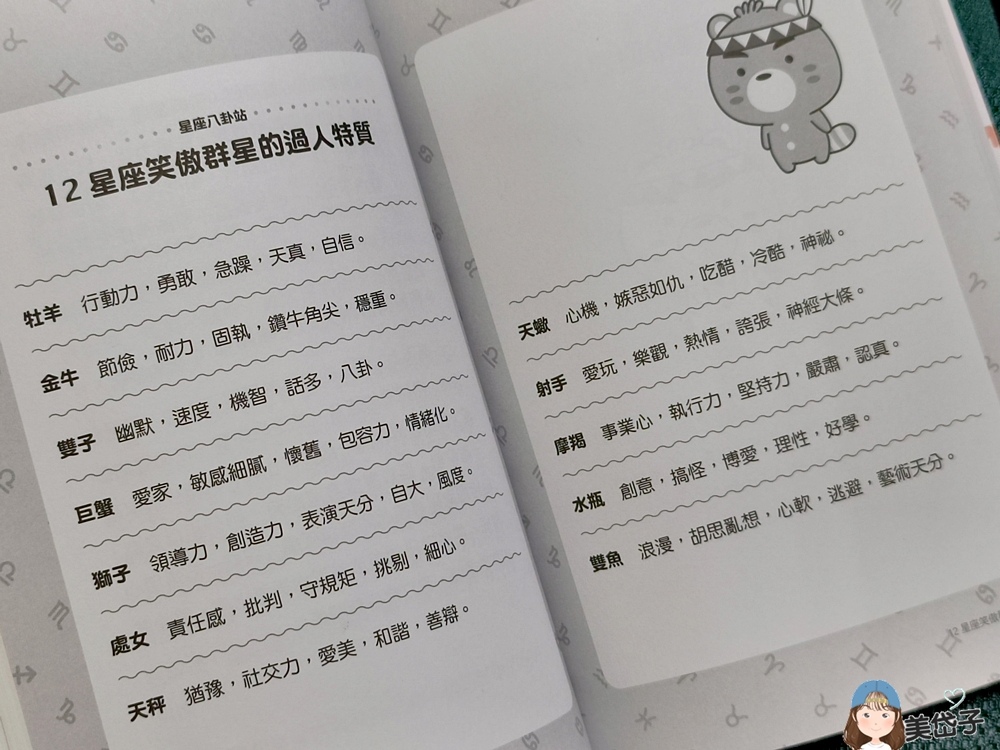 星座八卦站
12 星座笑傲群星的過人特質
牡羊 行動力，勇敢，急躁，天真，自信。
金牛 節儉，耐力，固執，鑽牛角尖，穩重。
雙子 幽默，速度，機智，話多，八卦。
巨蟹 愛家，敏感細膩，懷舊，包容力，情緒化。
獅子 領導力，創造力，表演天分，自大，風度。
處女 責任感，批判，守規矩，挑剔，細心。
天秤 猶豫，社交力，愛美，和諧，善辯。
天蠍 心機，嫉惡如仇，吃醋，冷酷，神祕。
射手 愛玩，樂觀，熱情，誇張，神經大條。
摩羯 事業心，執行力，堅持力，嚴肅，認真。
水瓶 創意，搞怪，博愛，理性，好學。
雙魚 浪漫，胡思亂想，心軟，逃避，藝術天分。
2 星座笑傲
美岱子